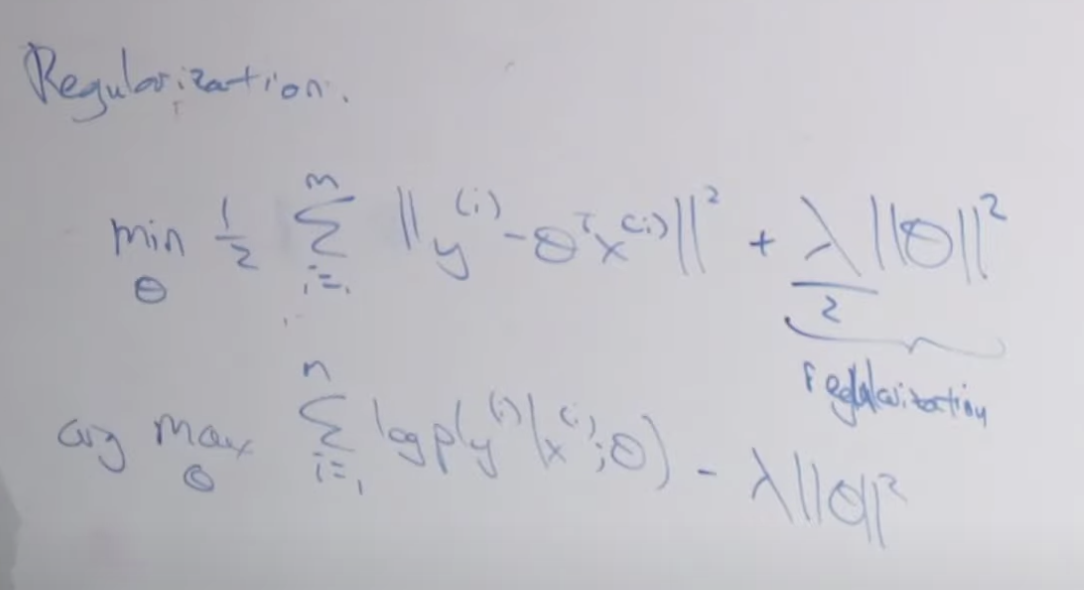 Regularization.
min_θ 1/2 Σ_{i=1}^{m} ||y^{(i)} - θ^T x^{(i)}||^2 + λ/2 ||θ||^2
regularization
arg max_θ Σ_{i=1}^{n} log p(y^{(i)} | x^{(i)}; θ) - λ||θ||^2